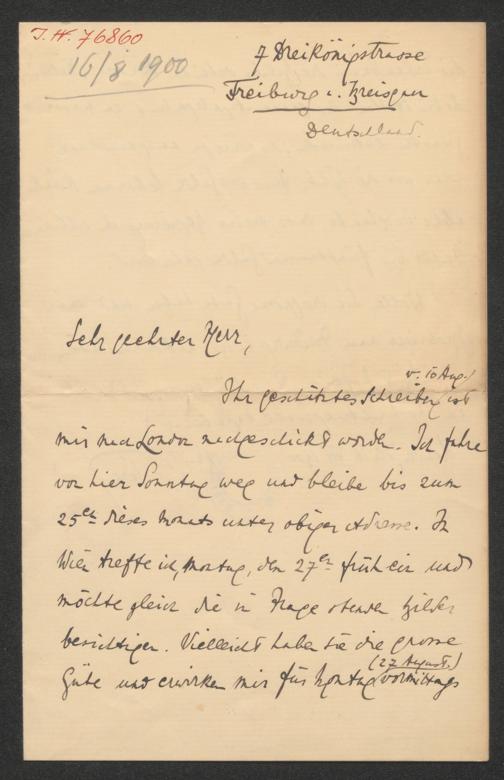 I.N. 76860
16/8 1900
7 Dreikönigstrasse
Freiburg i. Breisgau
Deutschland.
Sehr geehrter Herr,
v. 10 Aug.
Ihr geschätztes Schreiben ist
mir nach London nachgeschickt worden. Ich fahre
von hier Sonntag weg und bleibe bis zum
25en dieses Monats unter obiger Adresse. In
Wien treffe ich, Montag, den 27en früh ein und
möchte gleich die in Frage stehenden Bilder
besichtigen. Vielleicht haben Sie die grosse
(27 August.)
Güte und erwirken mir für Montag vormittags